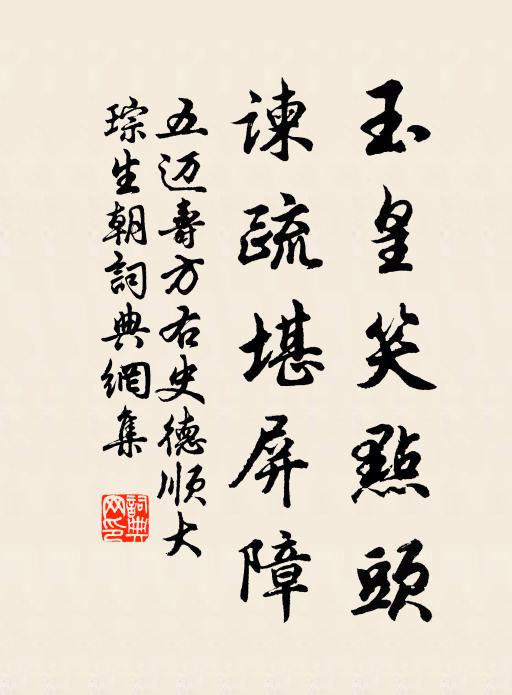 玉皇笑點頭
諫疏堪屏障
五迈壽方右史德順大
琮生朝詞典網集
詞典網印